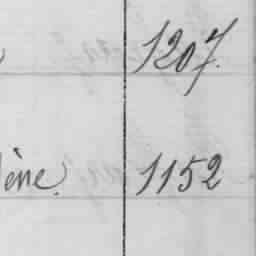 1207.
ène. 1152